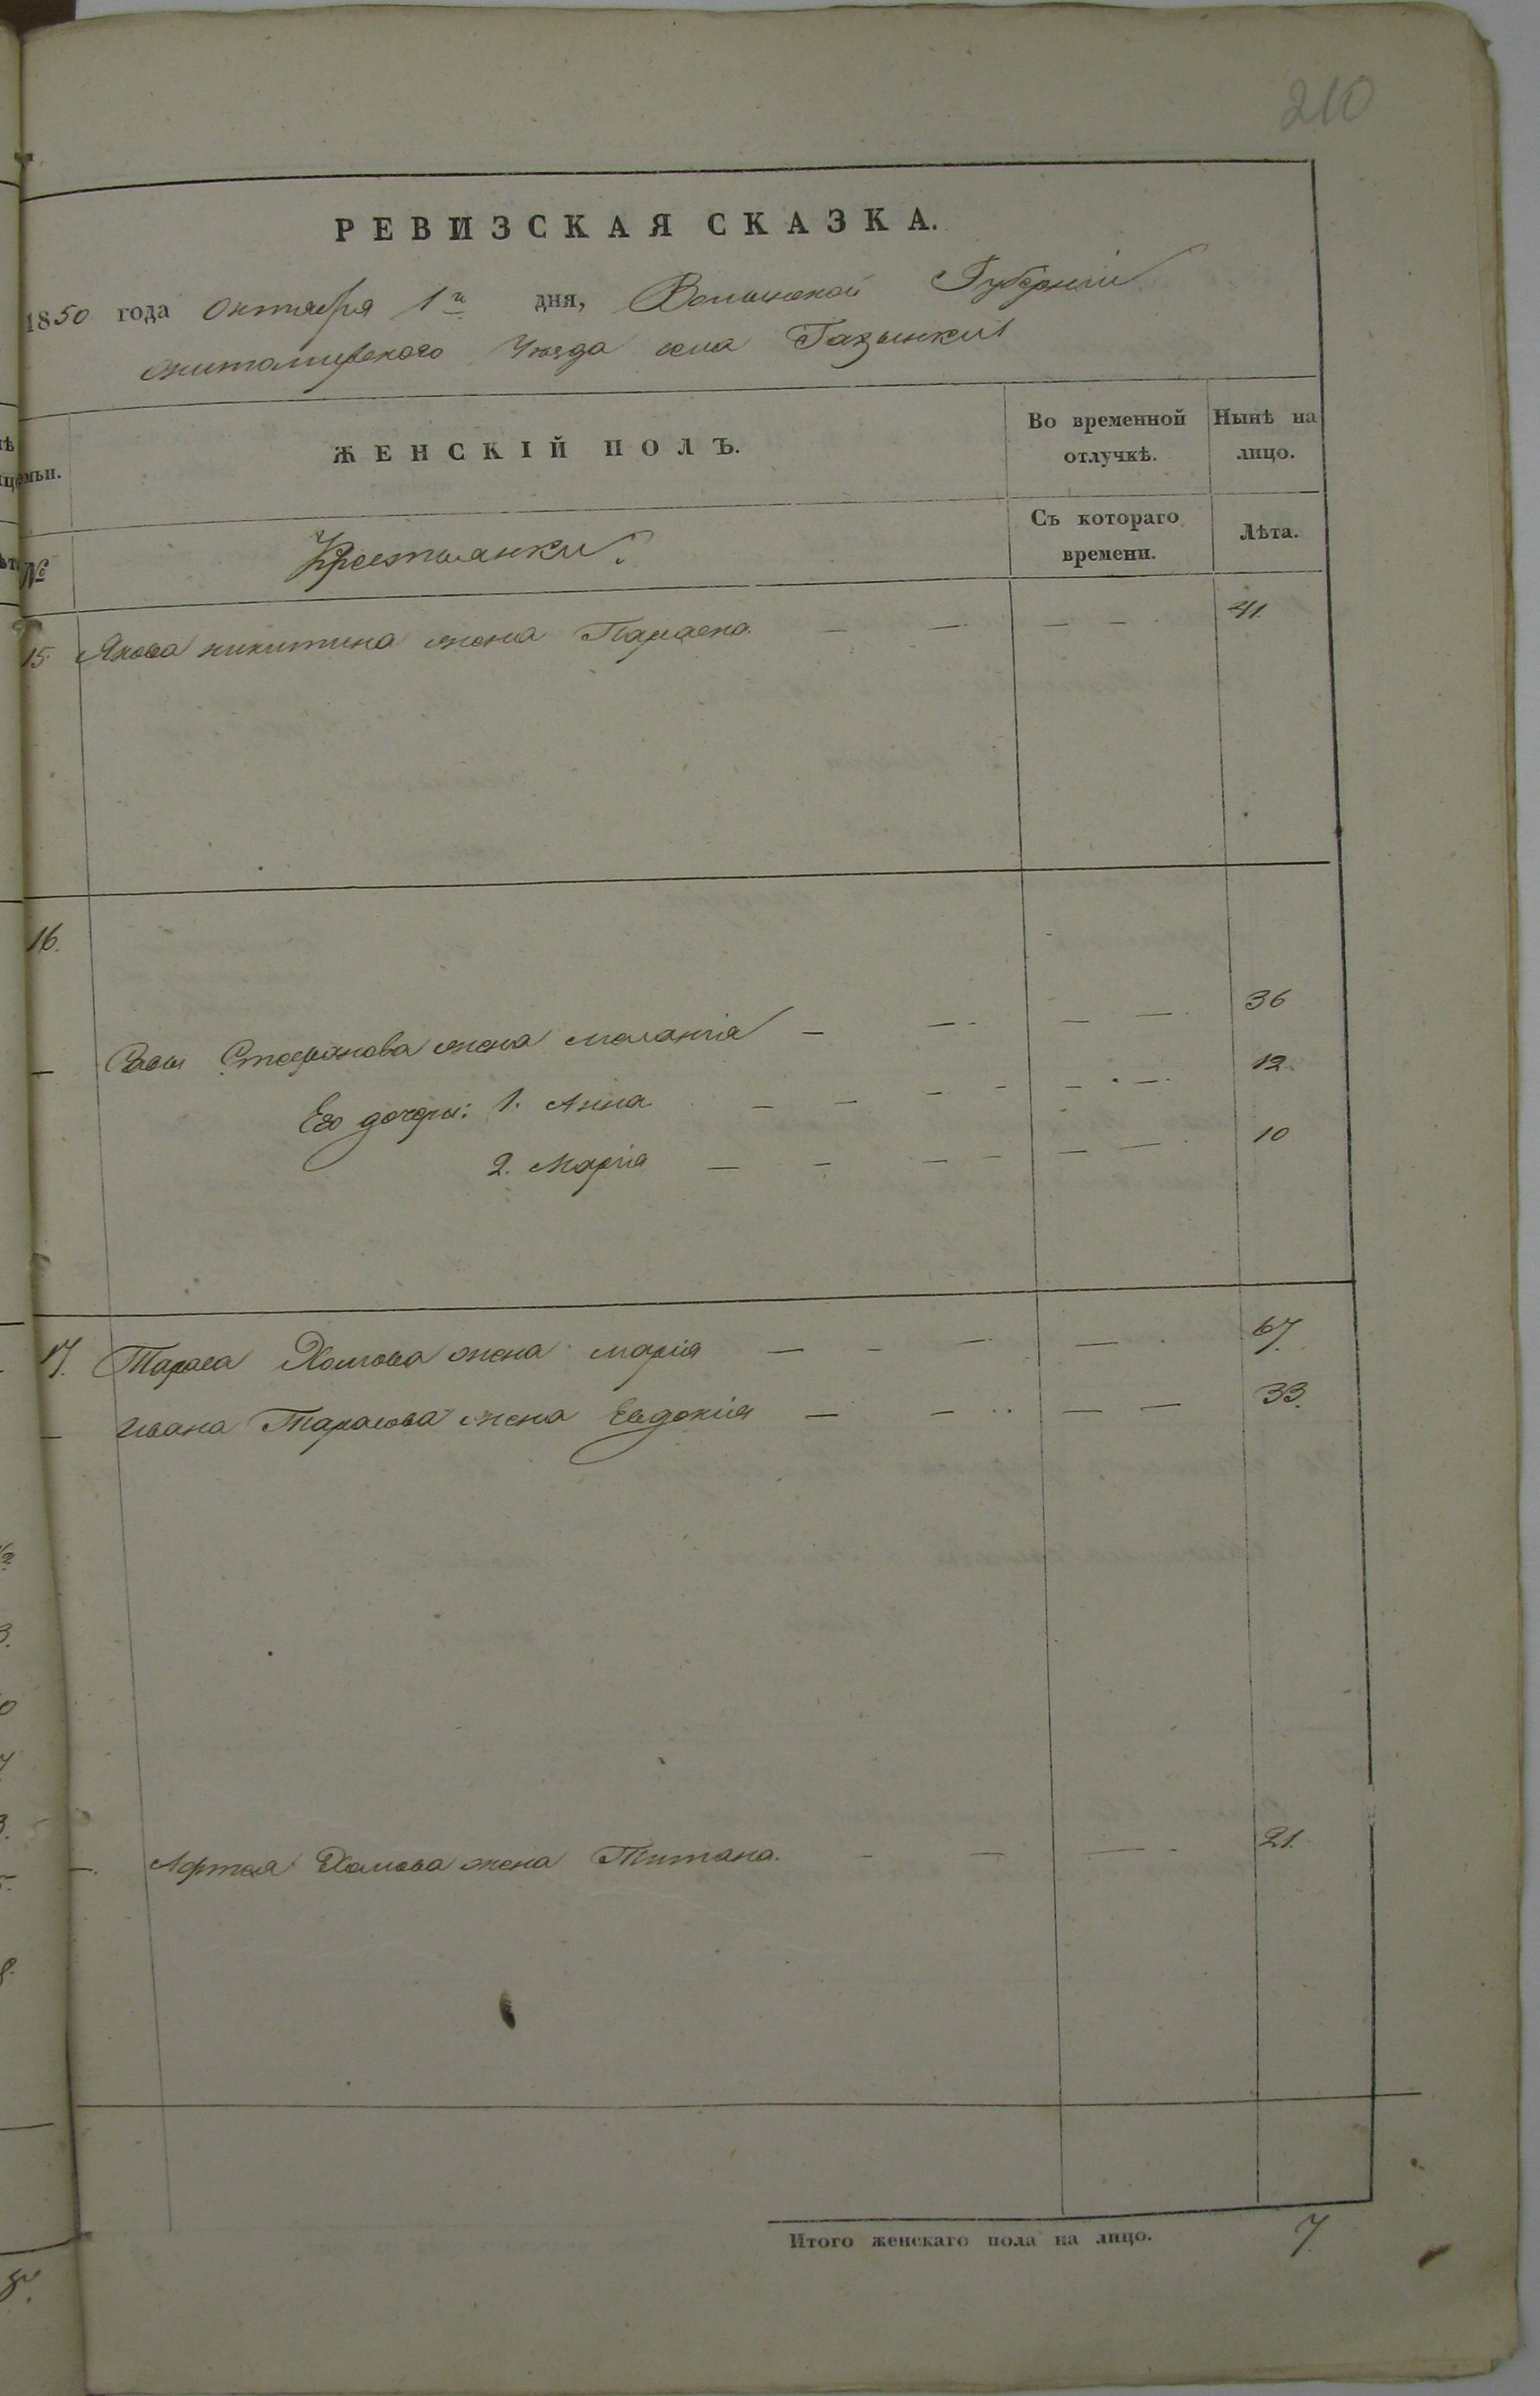 210
РЕВИЗСКАЯ СКАЗКА.
1850 года Октября 1го дня, Волынской Губерніи
Житомирского Уезда села Газынки
ЖЕНСКІЙ ПОЛЪ.
Во временной отлучкѣ.
Нынѣ на лицо.
семьи.
№
Крестьянки:
Съ котораго времени.
Лѣта.
15. Якова Никитина жена Параска — — — — 41.
16.
— Стефанова жена Маланія — — — — 36
Его дочери: 1. Анна — — — — — — 12.
2. Марія — — — — — — 10
17. Тараса Хомова жена Марія — — — — 67.
— Ивана Тарасова жена Евдокія — — — — 33.
—. Хомова жена Титана. — — — — 21.
Итого женскаго пола на лицо. 7.